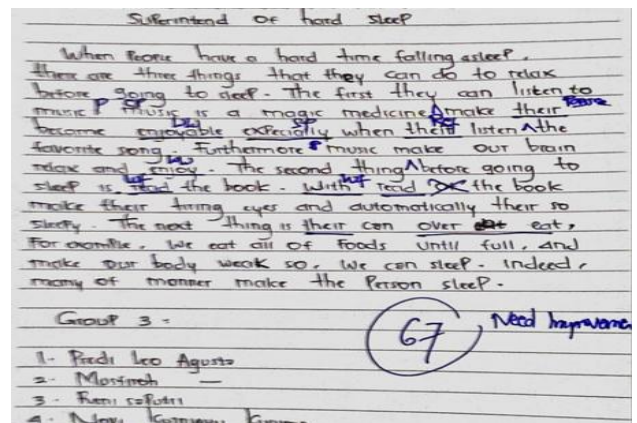 Superintend of hard sleep
When People have a hard time falling asleep,
there are three things that they can do to relax
before going to sleep. The first they can listen to
music P SP music is a magic medicine make their Tense
become enjoyable especially when their listen the
favorite song. Furthermore music make our brain
relax and enjoy. The second thing before going to
sleep is read the book. With read the book
make their tiring eyes and automatically their so
sleepy. The next thing is their can over eat,
For example, we eat all of foods until full, and
make our body weak so, we can sleep. Indeed,
many of manner make the Person sleep.
Group 3 -
67
Need Improvemen
1. Predi Leo
2. 
3. Reni
4.